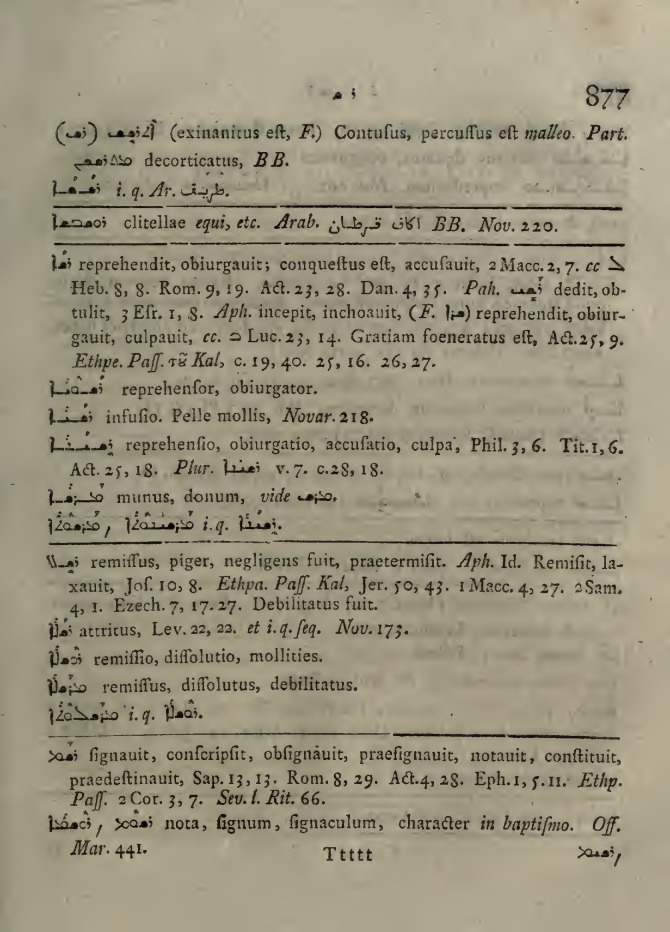 ܪ ܫ
877
(ܪܫܦ) ܐܬܪܫܦ (exinanitus eſt, F.) Contuſus, percuſſus eſt malleo. Part.
decorticatus, BB.
i. q. Ar. طريف.
clitellae equi, etc. Arab. اكاف قرطان BB. Nov. 220.
ܪܫܐ reprehendit, obiurgauit; conqueſtus eſt, accuſauit, 2 Macc. 2, 7. cc ܥܠ
Heb. 8, 8. Rom. 9, 19. Act. 23, 28. Dan. 4, 35. Pah. ܪܫܝ dedit, ob-
tulit, 3 Eſr. 1, 8. Aph. incepit, inchoauit, (F. ) reprehendit, obiur-
gauit, culpauit, cc. ܒ Luc. 23, 14. Gratiam foeneratus eſt, Act. 25, 9.
Ethpe. Paſſ. τȣ Kal, c. 19, 40. 25, 16. 26, 27.
ܪܫܘܝܐ reprehenſor, obiurgator.
infuſio. Pelle mollis, Novar. 218.
ܪܫܝܢܐ reprehenſio, obiurgatio, accuſatio, culpa, Phil. 3, 6. Tit. 1, 6.
Act. 25, 18. Plur. ܪܫܝܢܐ v. 7. c. 28, 18.
munus, donum, vide
i. q. ܪܫܝܢܐ.
ܪܫܠ remiſſus, piger, negligens fuit, praetermiſit. Aph. Id. Remiſit, la-
xauit, Joſ. 10, 8. Ethpa. Paſſ. Kal, Jer. 50, 43. 1 Macc. 4, 27. 2 Sam.
4, 1. Ezech. 7, 17. 27. Debilitatus fuit.
ܪܫܠܐ attritus, Lev. 22, 22. et i. q. ſeq. Nov. 173.
ܪܘܫܠܐ remiſſio, diſſolutio, mollities.
ܡܪܫܠܐ remiſſus, diſſolutus, debilitatus.
ܡܪܫܠܘܬܐ i. q. ܪܘܫܠܐ.
ܪܫܡ ſignauit, conſcripſit, obſignauit, praeſignauit, notauit, conſtituit,
praedeſtinauit, Sap. 13, 13. Rom. 8, 29. Act. 4, 28. Eph. 1, 5. 11. Ethp.
Paſſ. 2 Cor. 3, 7. Sev. l. Rit. 66.
ܪܘܫܡܐ, ܪܘܫܡ nota, ſignum, ſignaculum, character in baptiſmo. Off.
Mar. 441.
Ttttt